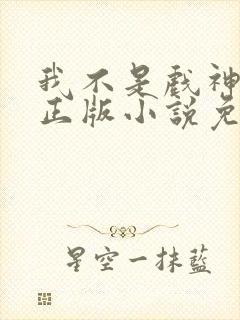 我不是戲神
正版小說免
星空一抹藍